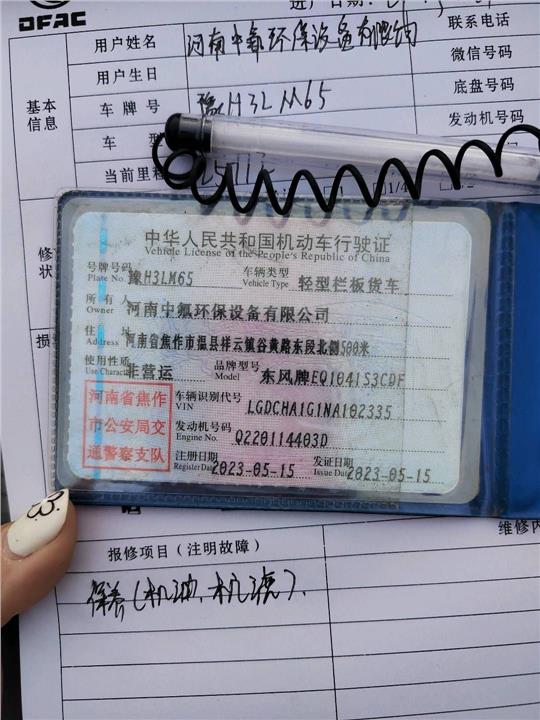 DFAC
进厂日期
用户姓名 河南中氟环保设备有限公司 联系电话
用户生日 微信号码
基本信息
车牌号 豫H3LM65 底盘号码
车 型 发动机号码
当前里程
中华人民共和国机动车行驶证
Vehicle License of the People's Republic of China
号牌号码 豫H3LM65 车辆类型 轻型栏板货车
Plate No. Vehicle Type
所有人 河南中氟环保设备有限公司
Owner
住 址 河南省焦作市温县祥云镇谷黄路东段北侧500米
Address
使用性质 非营运 品牌型号 东风牌EQ1041S3CDF
Use Character Model
河南省焦作
市公安局交
通警察支队
车辆识别代号 LGDCHA1G1NA102335
VIN
发动机号码 Q220114403D
Engine No.
注册日期 2023-05-15 发证日期 2023-05-15
Register Date Issue Date
维修内
报修项目（注明故障）
保养（机油、机滤）、